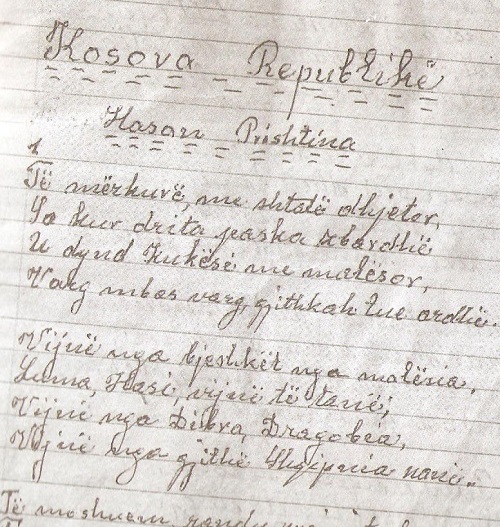 Kosova - Republikë
Hasan Prishtina
1
Të mërkurë, me shtatë dhjetor,
Sa kur drita paska zbardhë,
U dynd Kukësi me malësor,
Varg mbas varg, gjithkah tue ardhë.
Vijnë nga bjeshkët nga malësia,
Luma, Hasi, vijnë të tanë;
Vijnë nga Dibra, Dragobia,
Vijnë nga gjithë Shqipnia nanë.
Të moshuem